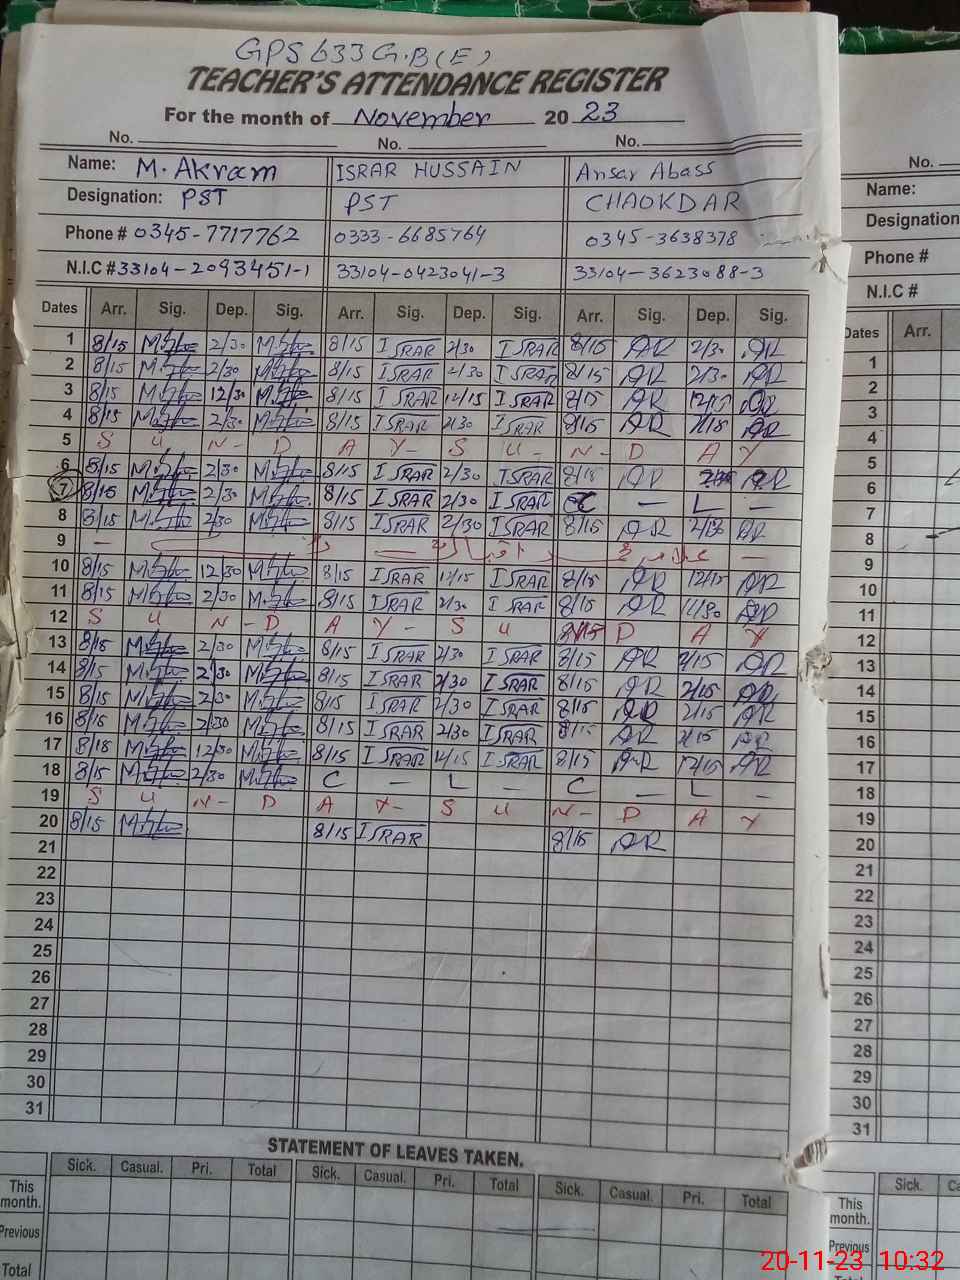 GPS 633 G.B (E)
TEACHER'S ATTENDANCE REGISTER
For the month of November 2023
No. No. No.
Name: M. Akram ISRAR HUSSAIN Ansar Abass
Designation: PST PST CHAOKDAR
Phone # 0345-7717762 0333-6685764 0345-3638378
N.I.C # 33104-2093451-1 33104-0423041-3 33104-3623088-3
Dates Arr. Sig. Dep. Sig. Arr. Sig. Dep. Sig. Arr. Sig. Dep. Sig.
1 8/15 2/30 8/15 ISRAR 2/30 ISRAR 8/15 AR 2/30 AR
2 8/15 2/30 8/15 ISRAR 2/30 ISRAR 8/15 AR 2/30 AR
3 8/15 12/30 8/15 ISRAR 12/15 ISRAR 8/15 AR 12/15 AR
4 8/15 2/30 8/15 ISRAR 2/30 ISRAR 8/15 AR 2/15 AR
5 S U N - D A Y - S U - N - D A Y
6 8/15 2/30 8/15 ISRAR 2/30 ISRAR 8/15 AR AR
7 8/15 2/30 8/15 ISRAR 2/30 ISRAR C — L —
8 8/15 2/30 8/15 ISRAR 2/30 ISRAR 8/15 AR 2/30 AR
9
10 8/15 12/30 8/15 ISRAR 12/15 ISRAR 8/15 AR 12/15 AR
11 8/15 2/30 8/15 ISRAR 2/30 ISRAR 8/15 AR AR
12 S U N - D A Y - S U D A Y
13 8/15 2/30 8/15 ISRAR 2/30 ISRAR 8/15 AR 2/15 AR
14 8/15 2/30 8/15 ISRAR 2/30 ISRAR 8/15 AR 2/15 AR
15 8/15 2/30 8/15 ISRAR 2/30 ISRAR 8/15 AR 2/15 AR
16 8/15 2/30 8/15 ISRAR 2/30 ISRAR 8/15 AR 2/15 AR
17 8/15 12/30 8/15 ISRAR 12/15 ISRAR 8/15 AR 12/15 AR
18 8/15 2/30 C — L — C — L —
19 S U N - D A Y - S U N - D A Y
20 8/15 8/15 ISRAR 8/15 AR
21
22
23
24
25
26
27
28
29
30
31
STATEMENT OF LEAVES TAKEN.
Sick. Casual. Pri. Total Sick. Casual. Pri. Total Sick. Casual. Pri. Total
This month.
Previous
Total
No.
Name:
Designation
Phone #
N.I.C #
Dates Arr.
1
2
3
4
5
6
7
8
9
10
11
12
13
14
15
16
17
18
19
20
21
22
23
24
25
26
27
28
29
30
31
Sick.
This month.
Previous
20-11-23 10:32